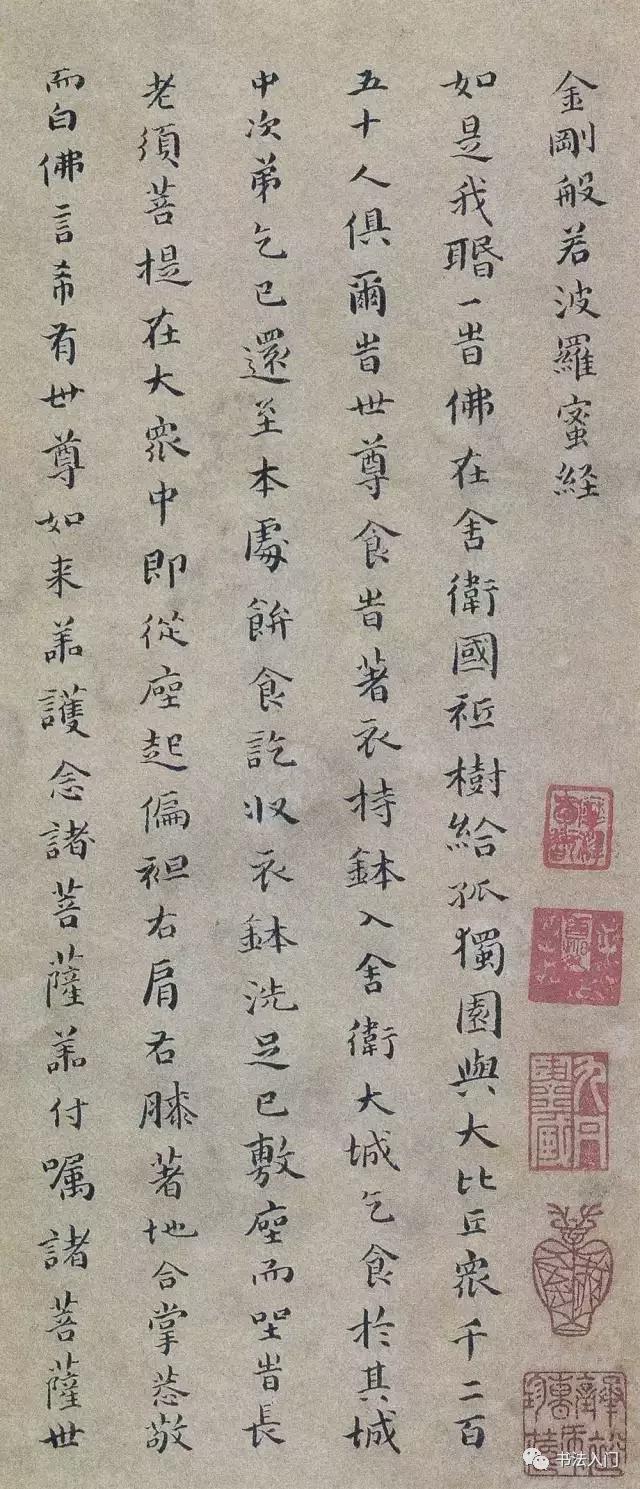 金剛般若波羅蜜経
如是我䎽一旹佛在舍衛國祇樹給孤獨園與大比丘衆千二百
五十人俱爾旹世尊食旹著衣持鉢入舍衛大城乞食於其城
中次弟乞已還至本處飰食訖収衣鉢洗足已敷座而坐旹長
老須菩提在大衆中即從座起偏袒右肩右膝著地合掌恭敬
而白佛言希有世尊如来善護念諸菩薩善付囑諸菩薩世
书法入门